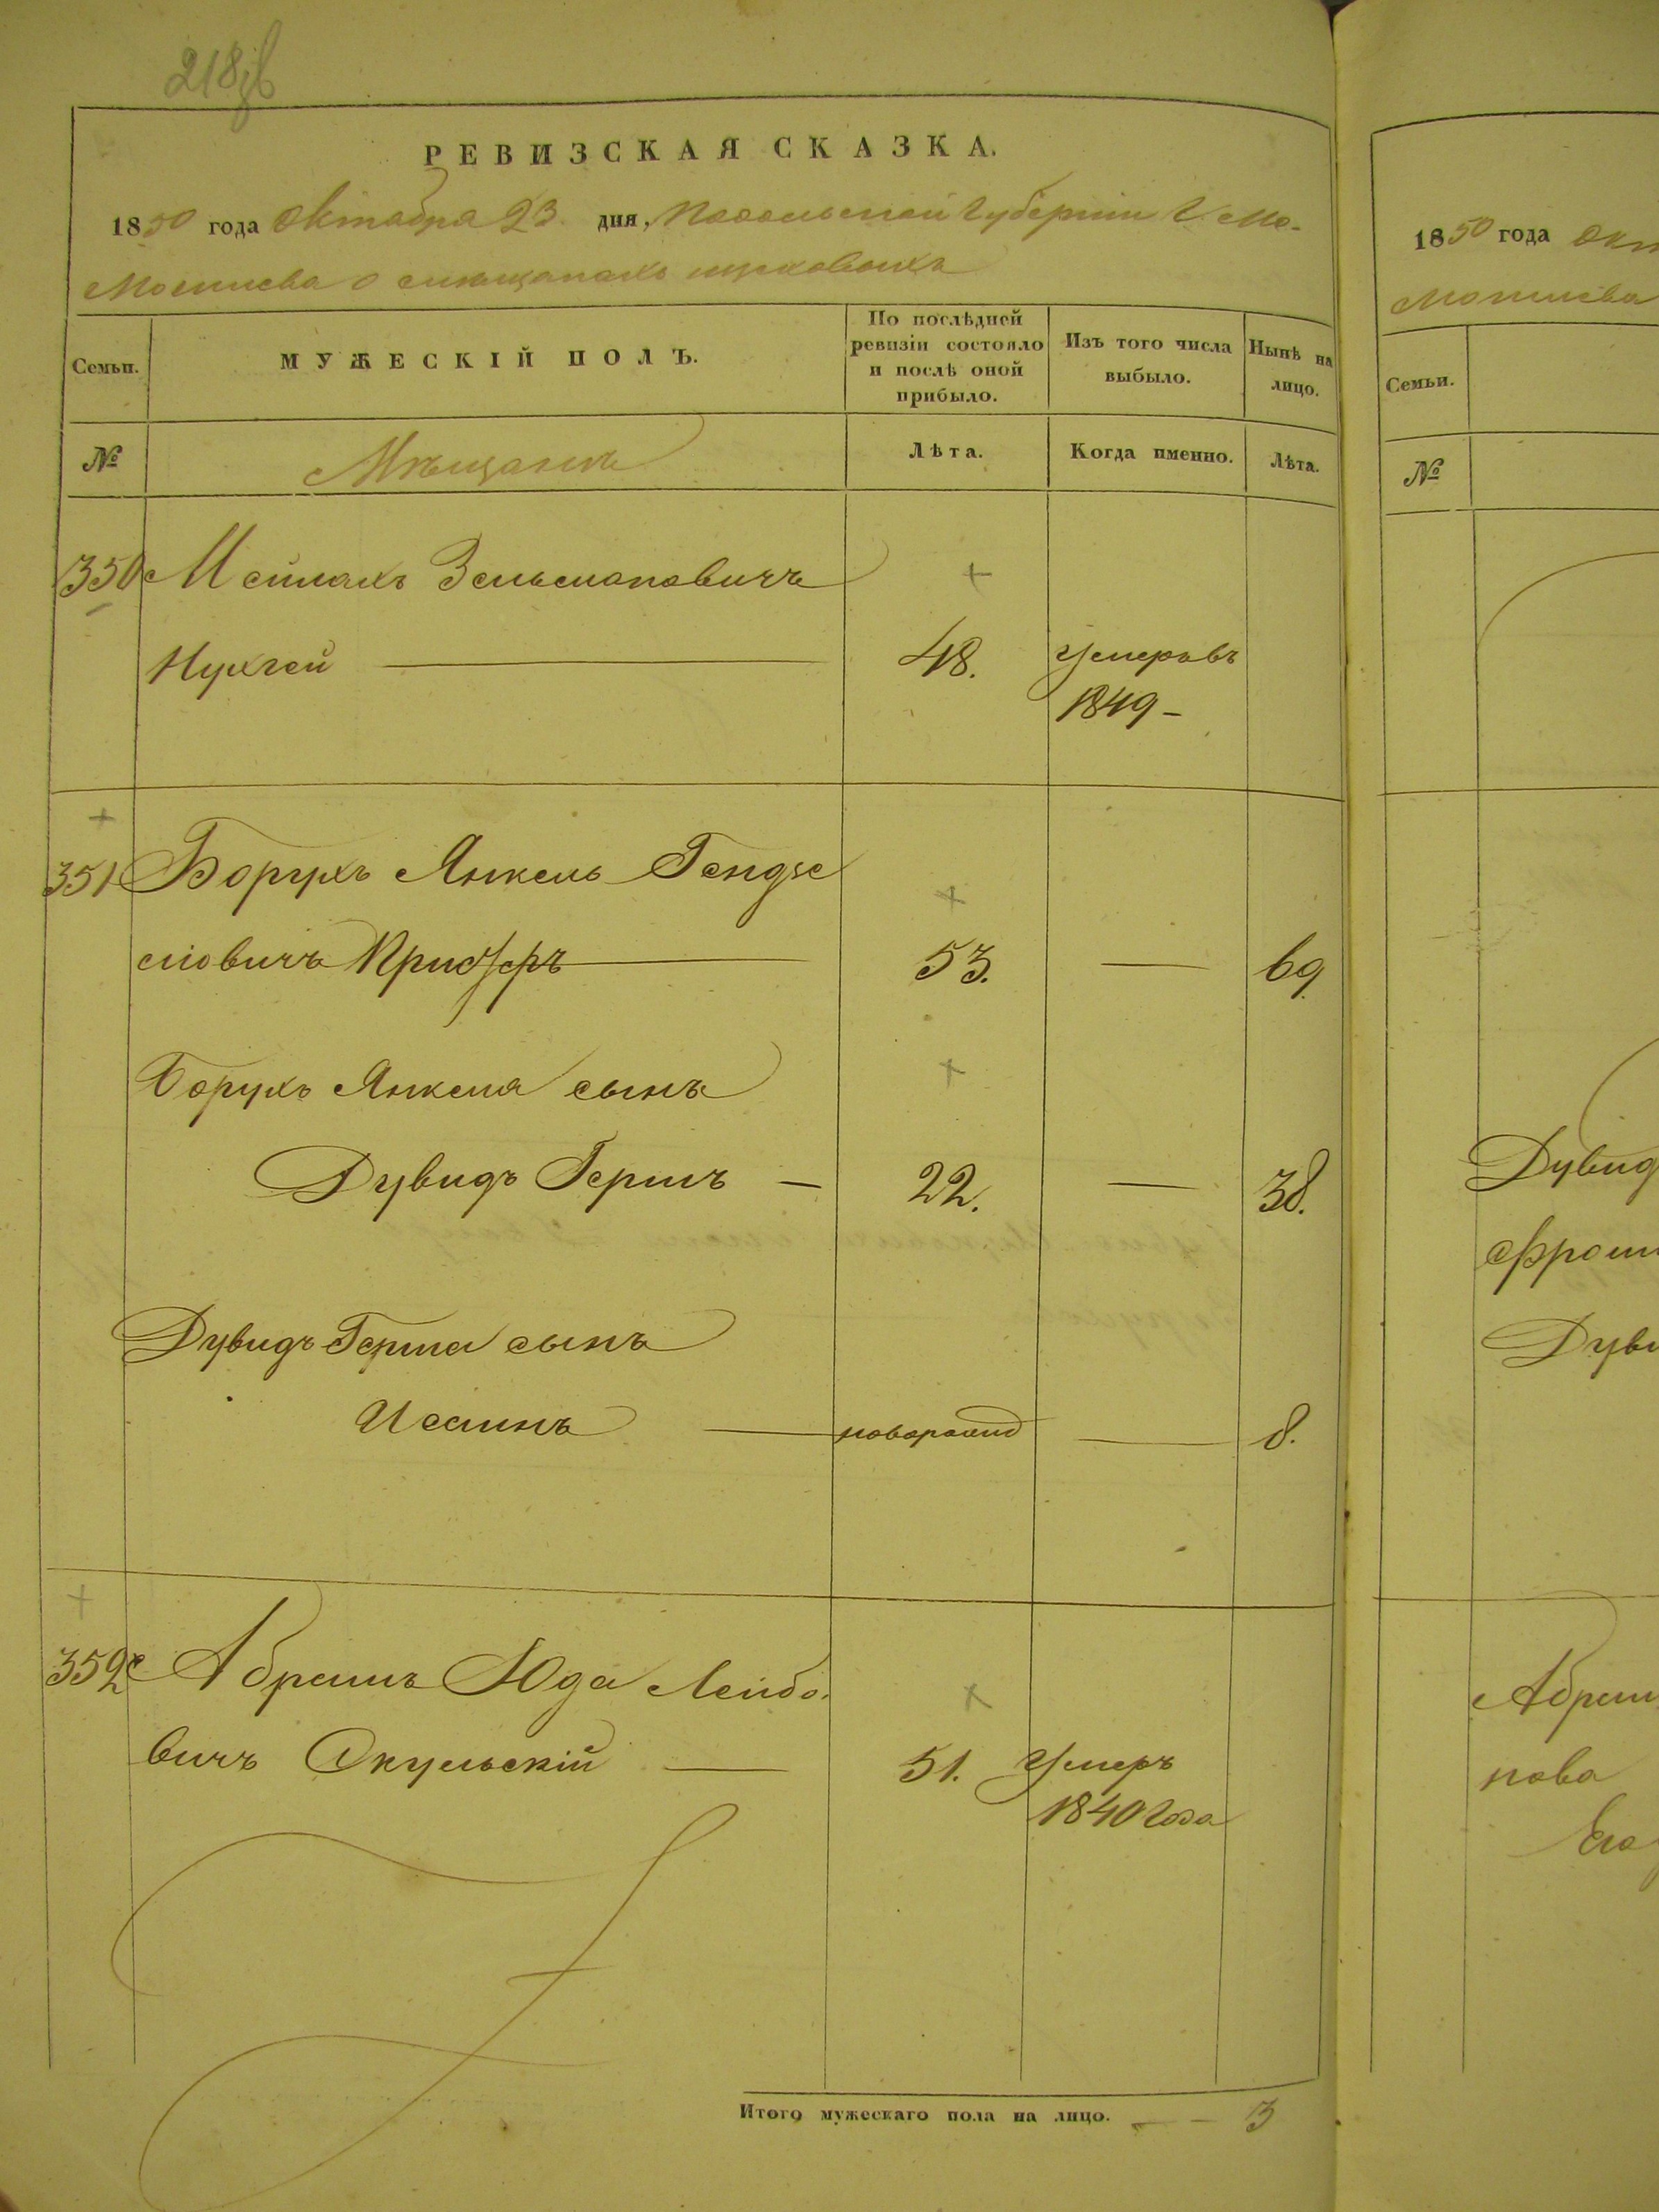 218
РЕВИЗСКАЯ СКАЗКА.
1850 года Октабра 23 дня, Подольской Губернии Г. Мо-
Могилева о мещанах
Семьи.
МУЖЕСКІЙ ПОЛЪ.
По послѣдней
ревизіи состояло
и послѣ оной
прибыло.
Изъ того числа
выбыло.
Нынѣ на
лицо.
№
Мѣщане
Лѣта.
Когда именно.
Лѣта.
350 Мейлахъ Зельмановичъ
Нухгей 48. умеръ въ
1849 –
351 Борухъ Янкель Генде
лiовичъ 53. — 69.
Борухъ Янкеля сынъ
Дувидъ Гершъ — 22. — 38.
Дувидъ Герша сынъ
— новорожд — 8.
352 Абрамъ Юда Лейбо-
вичъ Окульскій — 51. Умеръ
1840 года
Итого мужескаго пола на лицо. — — 3
1850 года Окт
Могилева
Семьи.
№
Дувид
Фроим
Дуви
Абрам
нова
Его